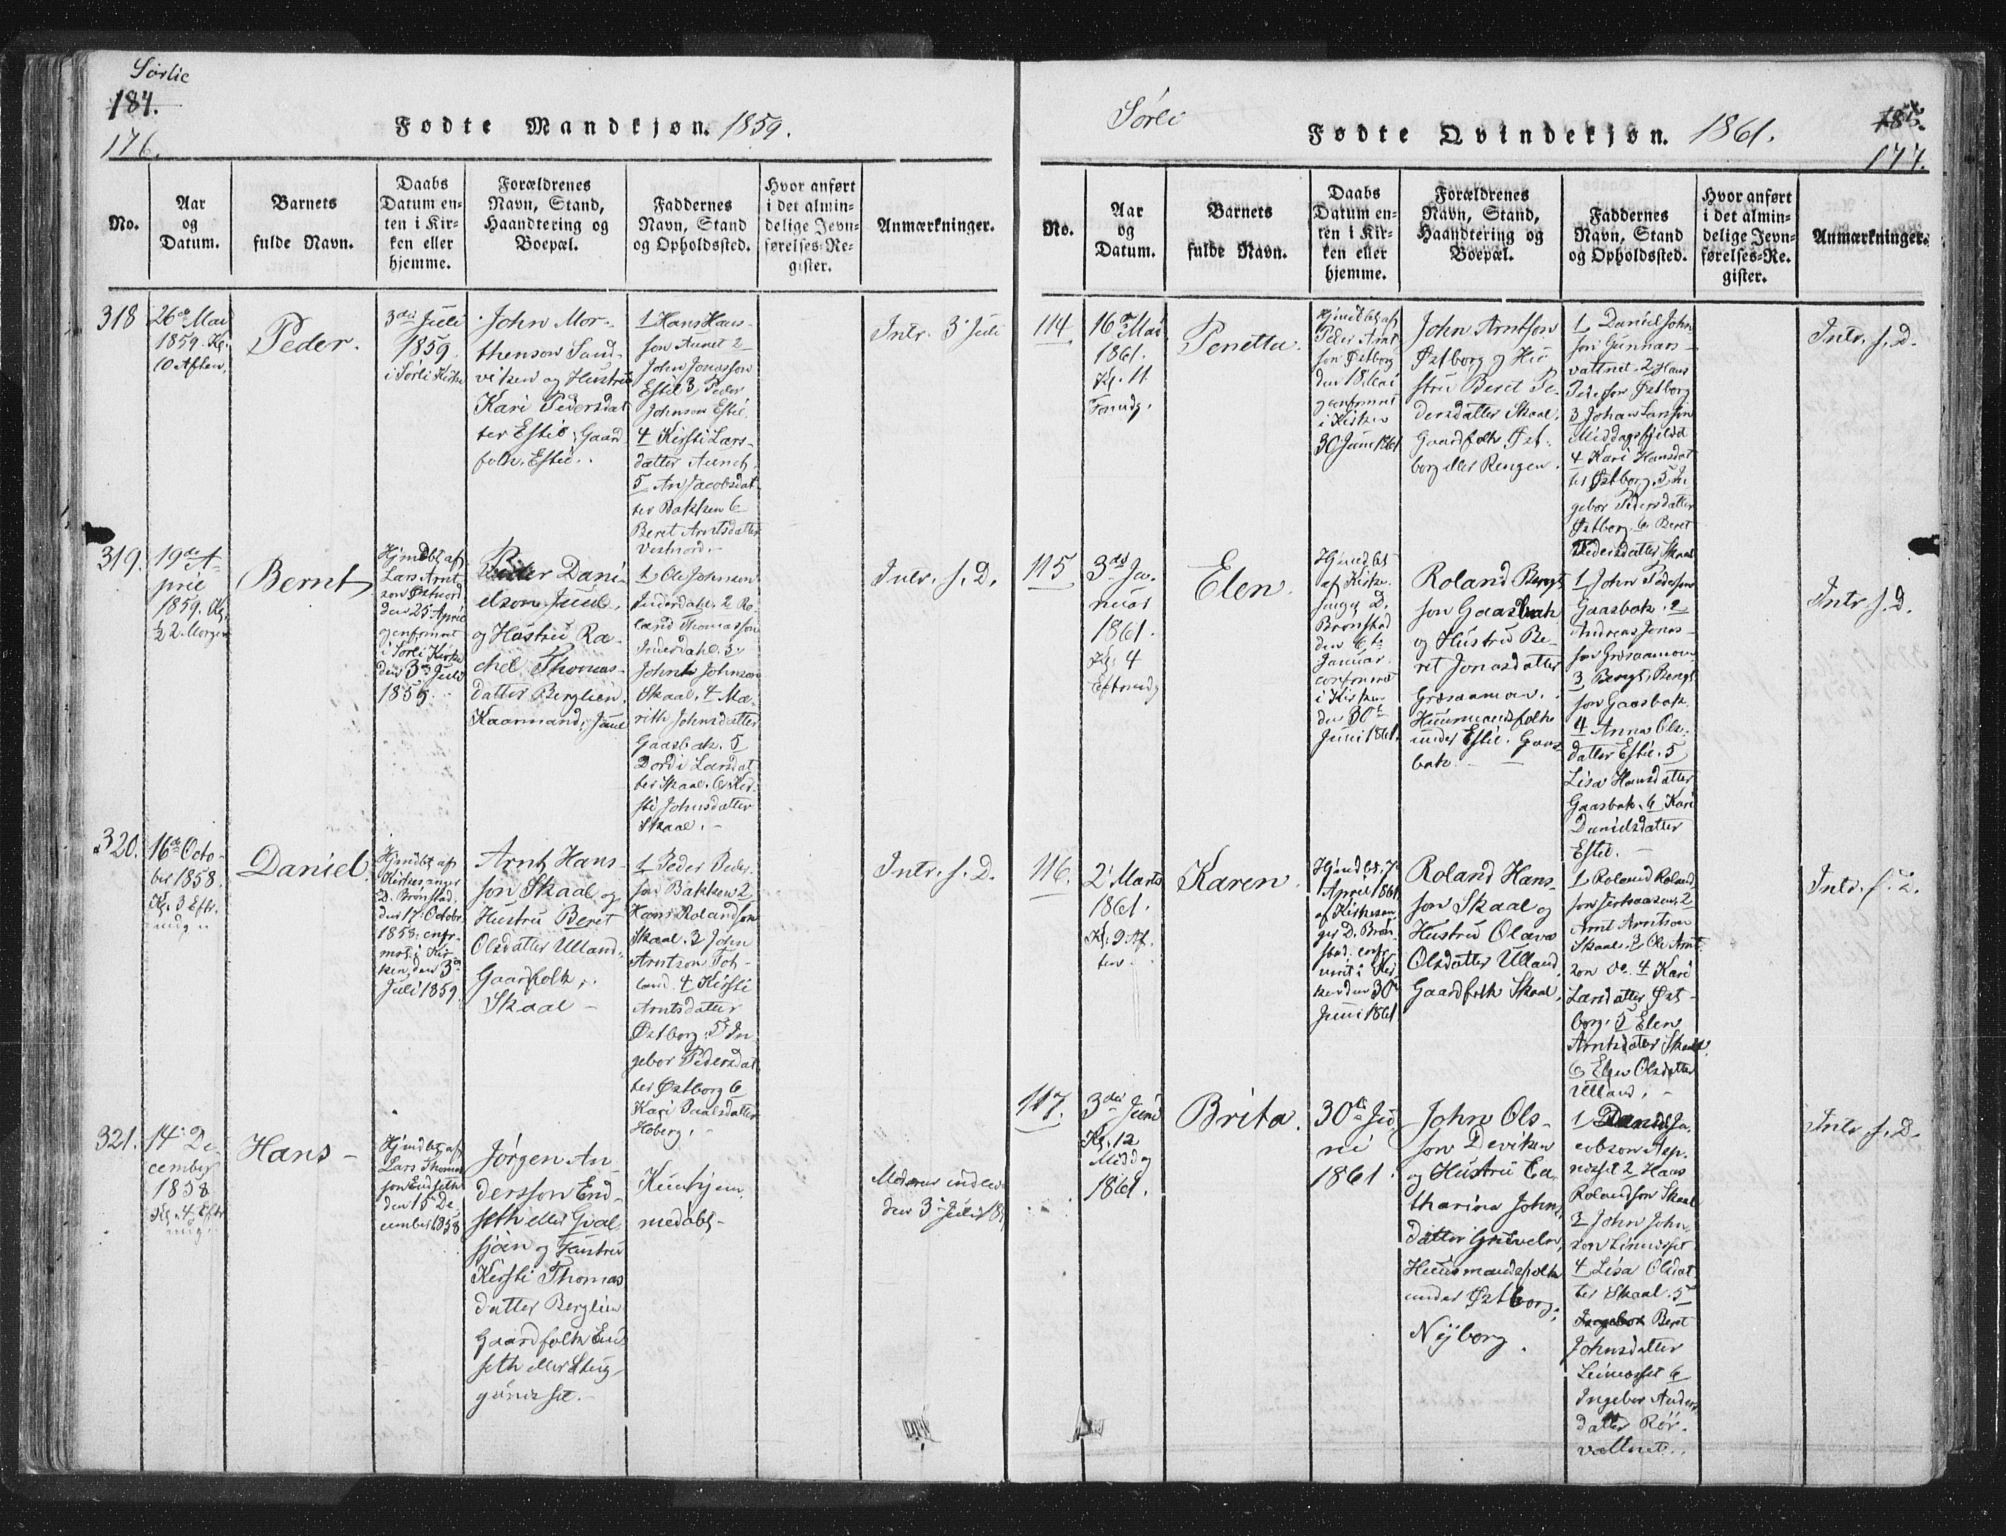 Sørlie
184.
176.
Fødte Mandkjøn. 1859.
No.
Aar
og
Datum.
Barnets
fulde Navn.
Daabs
Datum en-
ten i Kir-
ken eller
hjemme.
Forældrenes
Navn, Stand,
Haandtering og
Boepæl.
Faddernes
Navn, Stand
og Opholdssted.
Hvor anført
i det almin-
delige Jevn-
førelses-Re-
gister.
Anmærkninger.
318
26de Mai
1859. Kl.
10 Aften.
Peder.
3die Juli
1859.
i Sørli Kirke
John Mor-
thenson Sand-
viken og Hustru
Kari Pedersdat
ter Estil, Gaard
folk. Estil.
1 Hans Hans-
son Aunet 2
John Jonasson
Estil 3, Peder
Johnson Estil.
4 Kirsti Lars-
datter Aunet.
5 An Jacobsdat-
ter Bakken 6
Beret Arntsdatter
Vestnord.
Intr. 3 Juli
319.
19de A-
pril
1859. Kl.
½ 2. Morgen
Bernt
Hjmdbt af
Lars Arnt
son Østnord
den 25 April
og confirmet
i Sørli Kirke
den 3die Juli
1859.
Peder Dani-
elson Juul,
og Hustru Ra-
chel Thomas-
datter Berglien.
Kaarmand, Juul
1 Ole Johnson
Inderdahl, 2 Ro-
land Thomasson
Inderdahl. 3
John Johnson
Skaal. 4 Ma-
rith Johnsdatter
Gaasbak. 5
Dordi Larsdat
ter Skaal. 6 Kir-
sti Johnsdatter
Skaal.
Intr. s. D.
320.
16de Octo-
ber 1858.
Kl. 3 Eftr.
mdg.
Daniel.
Hjmdbt af
Kirkesanger
D. Brønstad
den 17 Octobr.
1858. cnfr-
met i Kir-
ken, den 3die
Juli 1859.
Arnt Hans-
son Skaal og
Hustru Beret
Olsdatter Ulland.
Gaardfolk,
Skaal
1 Peder Peder-
son Bakken 2,
Hans Rolandson
Skaal. 3 John
Arntson Tot-
land. 4 Kirsti
Arntsdatter
Østborg. 5 In-
gebor Pedersdat
ter Østborg 6
Kari Paalsdatter
Hoberg.
Intr. s. D.
321.
14 De-
cember
1858
Kl. 4 Eftr
mdg.
Hans
Hjmdbt af
Lars Thomas
son Endseth
den 15 De-
cember 1858
Jørgen An-
dersson End-
seth eller Qval-
sjøen og Hustru
Kirsti Thomas
datter Berglien
Gaardfolk End
seth eller
Kun hjem
medøbt
Moderen indled
den 3 Juli 18
Sørli
Fødte Qvindekjøn. 1861.
185.
177.
No.
Aar
og
Datum.
Barnets
fulde Navn.
Daabs
Datum en-
ten i Kir-
ken eller
hjemme.
Forældrenes
Navn, Stand,
Haandtering og
Boepæl.
Faddernes
Navn, Stand
og Opholdssted.
Hvor anført
i det almin-
delige Jevn-
førelses-Re-
gister.
Anmærkninger.
114.
16de Mai
1861.
Kl. 11
Formdg.
Penetta.
Hjmdbt af
Peder Arnt
son Østborg
den 18 Mai
og confirmet
i Kirken
30 Juni 1861
John Arntson
Østborg og Hu-
stru Beret Pe-
dersdatter Skaal.
Gaardfolk Øst-
borg eller Rengen.
1, Daniel John
son Gunnars-
vattnet. 2 Hans
Pederson Østborg
3 Johan Larsson
Middagsfjeld
4 Kari Hansdat
ter Østborg. 5 In
gebor Pedersdatter
Østborg 6 Beret
Pedersdatter Skaal
Intr. s. D.
115
3die Ja-
nuar
1861.
Kl. 4
Eftrmdg
Elen.
Hjmdbt
af Kirke-
sanger D.
Brønstad
den 6te
Januar.
confirmet
i Kirken
den 30te
Juni 1861
Roland Bengt
son Gaasbak
og Hustru Be-
ret Jonasdatter
Græsaamon.
Huusmandsfolk
under Estil. Gaas
bak.
1 John Pederson
Gaasbak. 2
Andreas Jonas-
son Græsaamon
3 Bengt Bengt
son Gaasbak.
4 Anna Ols-
datter Estil. 5
Lisa Hansdatter
Gaasbak. 6 Kari
Danielsdatter
Estil.
Intr. s. D.
116.
2 Marts
1861.
Kl. 9 Af-
ten
Karen.
Hjmdbt. 7
April 1861
af Kirkesan-
ger D. Brøn-
stad. cnfr-
met i Kir-
ken den 30te
Juni 1861
Roland Hans-
son Skaal og
Hustru Olava
Olsdatter Ulland
Gaardfolk Skaal.
1 Roland Roland
son 2
Arnt Arntson
Skaal. 3 Ole Arnt
son do. 4 Kari
Larsdatter Øst-
borg. 5 Elen
Arntsdatter Skaal.
6 Elen Olsdatter
Ulland.
Intr. s. D.
117.
3die Juni
Kl. 12
Middag
1861.
Brita.
30te Ju-
ni
1861.
John Ols-
son Deviken
og Hustru Ca-
tharina Johns-
datter
Huusmandsfolk
under Østborg.
Nyborg.
1 Daniel Ja-
cobson Asp-
nesset 2 Hans
Rolandson Skaal
3 John John-
son Leinesset
4 Lisa Olsdat
ter Skaal. 5
Ingebor Beret
Johnsdatter
Leinesset 6
Ingebor Anders
datter Rør-
vattnet.
Intr. s. D.